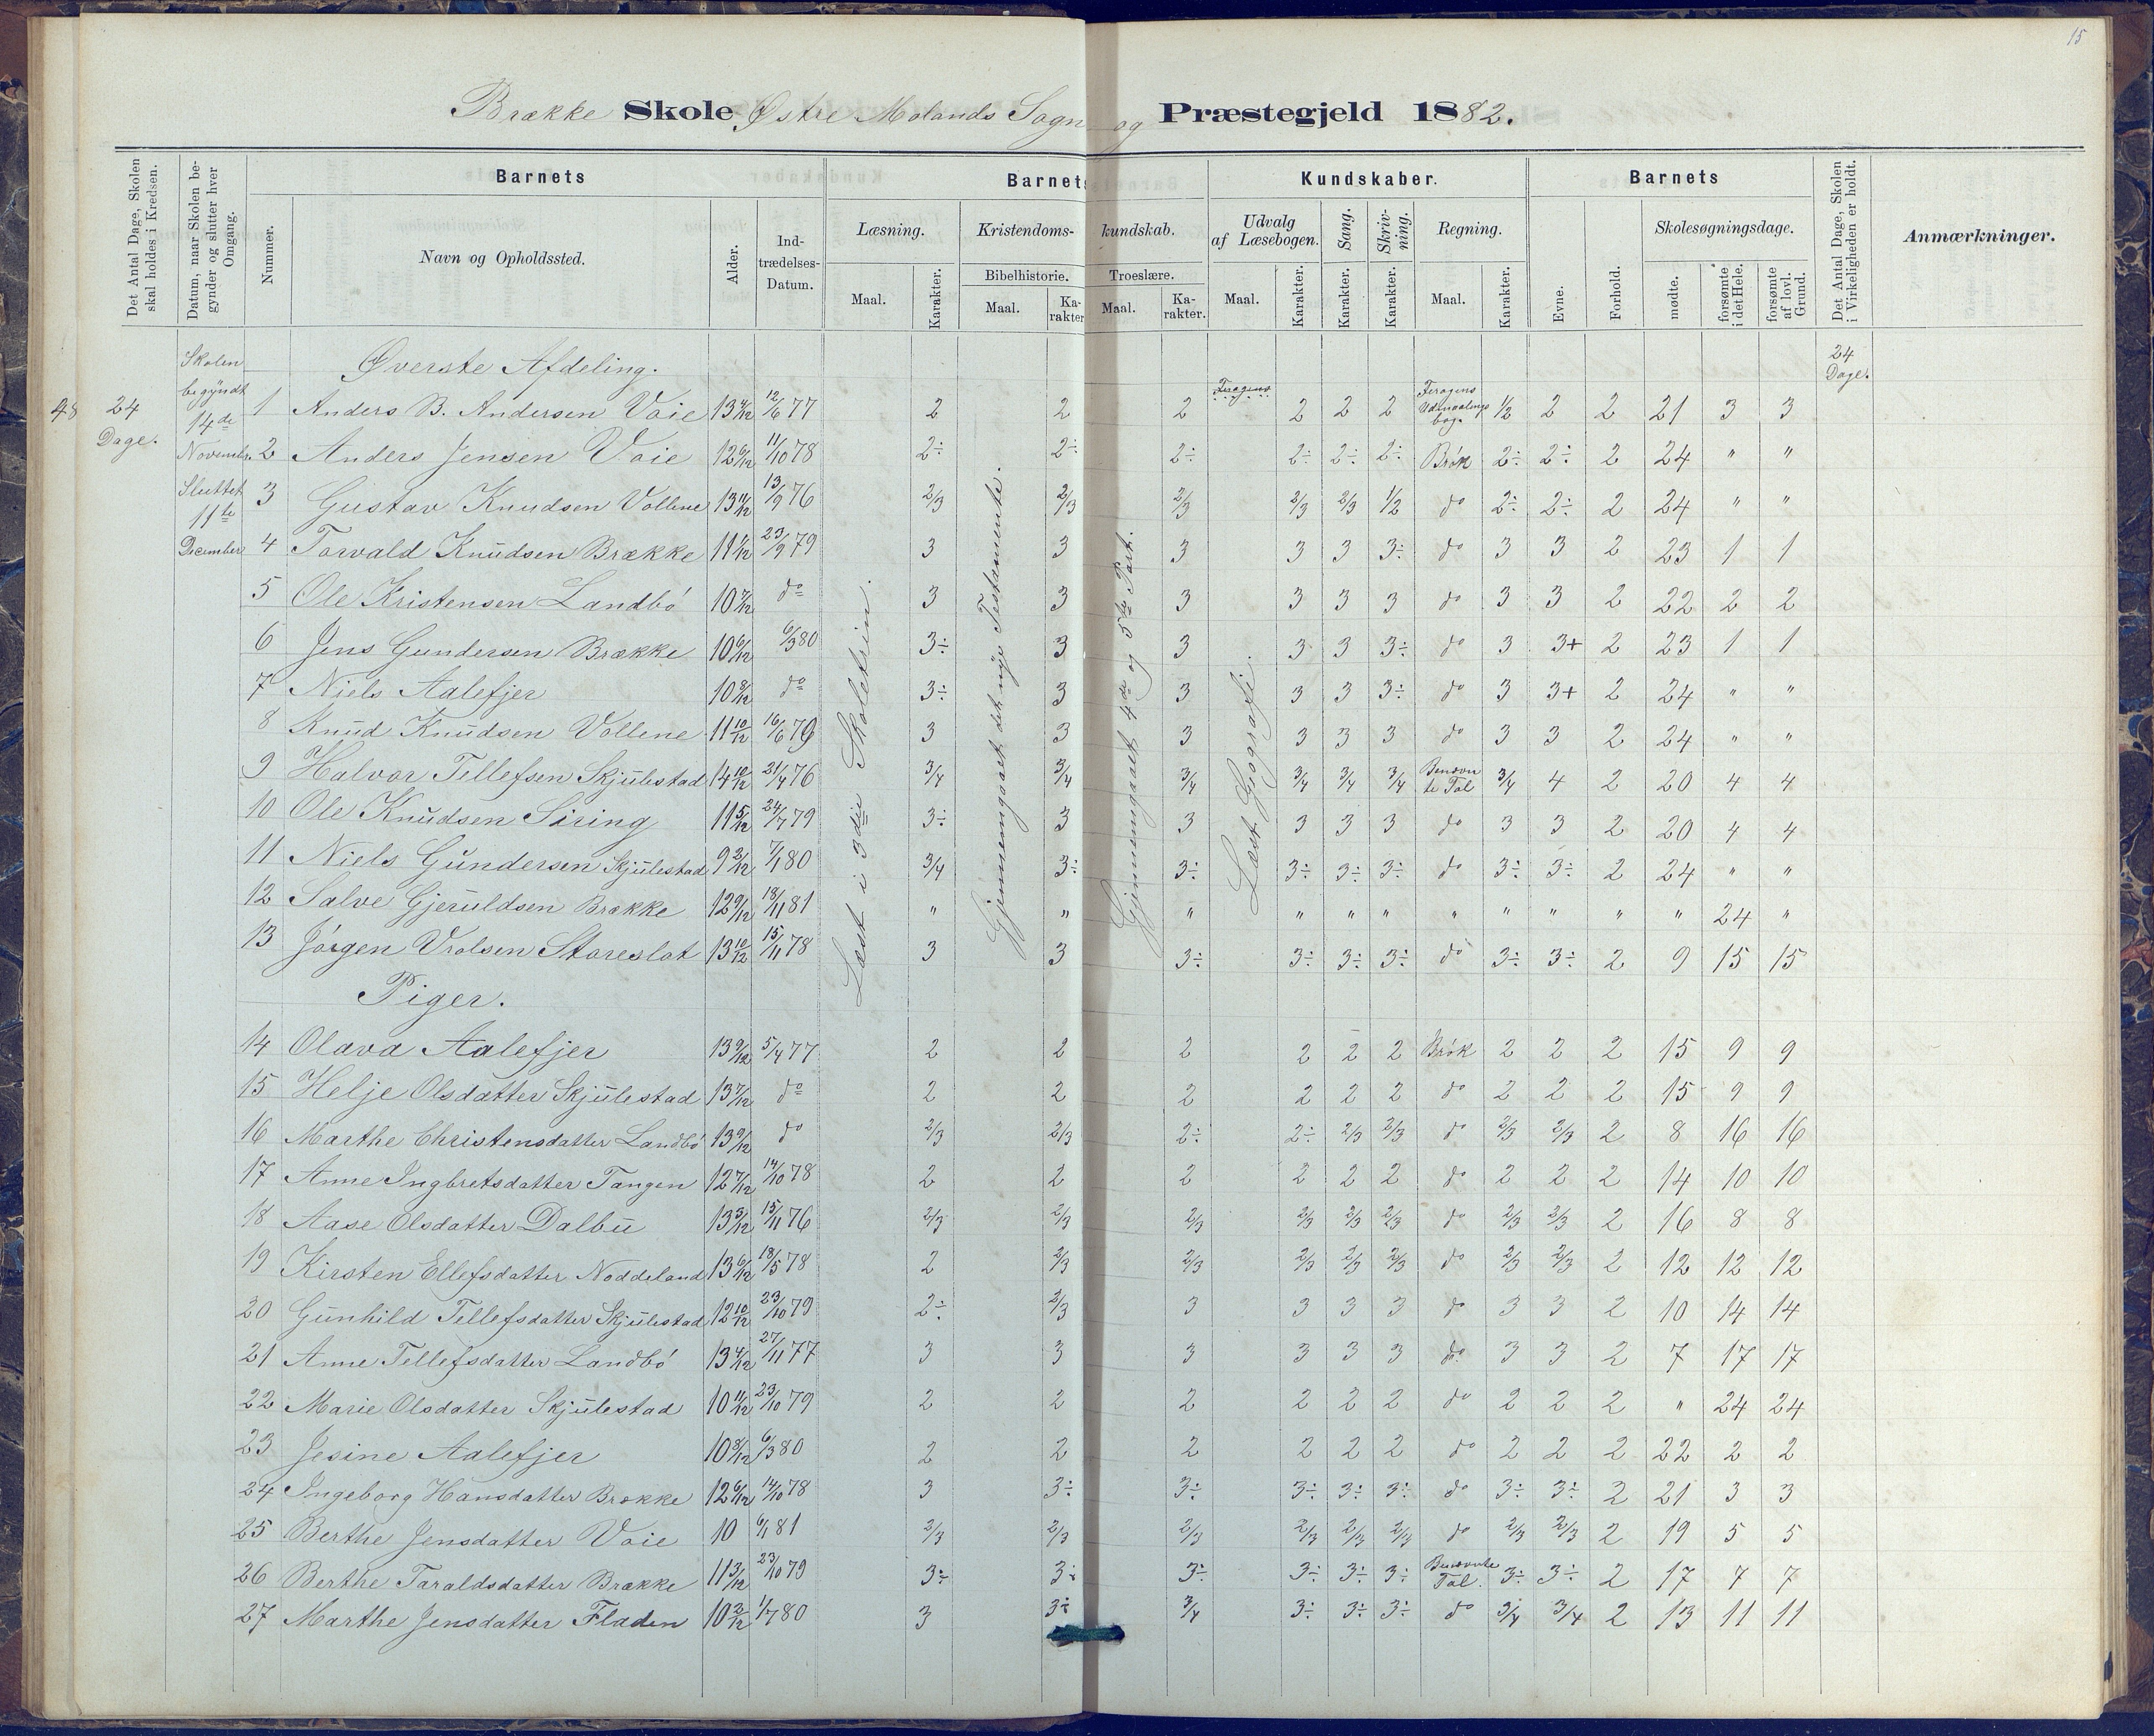 15
Brække Skole Østre Molands Sogn og Præstegjeld 1882.
Det Antal Dage, Skolen skal holdes i Kredsen.
Datum, naar Skolen begynder og slutter hver Omgang.
Barnets
Nummer.
Navn og Opholdssted.
Alder.
Indtrædelses-Datum.
Barnets Kundskaber.
Læsning.
Maal.
Karakter.
Kristendomskundskab.
Bibelhistorie.
Maal.
Karakter
Troeslære.
Maal.
Karakter.
Udvalg af Læsebogen.
Maal.
Karakter.
Sang.
Karakter.
Skrivning.
Karakter.
Regning.
Maal.
Karakter.
Barnets
Evne.
Forhold.
Skolesøgningsdage.
mødte.
forsømte i det Hele.
forsømte af lovl. Grund.
Det Antal Dage, Skolen i Virkeligheden er holdt.
Anmærkninger.
48
24 Dage.
Skolen begyndt 14de Novembr. Sluttet 11te December
24 Dage.
Læst i 3die Skoletrin.
Gjennemgaaet det nye Testamente.
Gjennemgaaet 4de og 5te Part.
Læst Geografi.
Øverste Afdeling.
1 Anders B. Andersen Voie 13 4/12 12/6 77 2 2 2 2 2 2 Feragens Udmaalings bog. 1/2 2 2 21 3 3
2 Anders Jensen Voie 12 6/12 11/10 78 2÷ 2÷ 2÷ 2÷ 2÷ 2÷ Brøk 2÷ 2÷ 2 24 " "
3 Gustav Knudsen Vollene 13 11/12 13/9 76 2/3 2/3 2/3 2/3 2/3 1/2 do 2÷ 2÷ 2 24 " "
4 Torvald Knudsen Brække 11 1/12 23/9 79 3 3 3 3 3 3÷ do 3 3 2 23 1 1
5 Ole Kristensen Landbö 10 7/12 do 3 3 3 3 3 3 do 3 3 2 22 2 2
6 Jens Gundersen Brække 10 6/12 6/3 80 3÷ 3 3 3 3 3÷ do 3 3+ 2 23 1 1
7 Niels Aalefjer 10 8/12 do 3÷ 3 3 3 3 3÷ do 3 3+ 2 24 " "
8 Knud Knudsen Vollene 11 10/12 16/6 79 3 3 3 3 3 3 do 3 3 2 24 " "
9 Halvor Tellefsen Skjulestad 14 10/12 21/4 76 3/4 3/4 3/4 3/4 3/4 3/4 Benævnte Tal 3/4 4 2 20 4 4
10 Ole Knudsen Siring 11 5/12 24/7 79 3÷ 3 3 3 3 3 do 3 3 2 20 4 4
11 Niels Gundersen Skjulestad 9 2/12 7/1 80 3/4 3÷ 3÷ 3÷ 3÷ 3÷ do 3÷ 3÷ 2 24 " "
12 Salve Gjeruldsen Brække 12 9/12 18/11 81 " " " " " " " " " " " 24 "
13 Jörgen Vrolsen Storeslot 13 10/12 15/11 78 3 3 3÷ 3÷ 3÷ 3÷ do 3÷ 3÷ 2 9 15 15
Piger.
14 Olava Aalefjer 13 9/12 5/4 77 2 2 2 2 2 2 Brøk 2 2 2 15 9 9
15 Helje Olsdatter Skjulestad 13 7/12 do 2 2 2 2 2 2 do 2 2 2 15 9 9
16 Marthe Christensdatter Landbö 13 9/12 do 2/3 2/3 2÷ 2÷ 2/3 2/3 do 2/3 2/3 2 8 16 16
17 Anne Ingbretsdatter Tangen 12 7/12 14/10 78 2 2 2 2 2 2 do 2 2 2 14 10 10
18 Aase Olsdatter Dalbu 13 5/12 15/11 76 2/3 2/3 2/3 2/3 2/3 2/3 do 2/3 2/3 2 16 8 8
19 Kirsten Ellefsdatter Noddeland 13 6/12 18/5 78 2 2/3 2/3 2/3 2/3 2/3 do 2/3 2/3 2 12 12 12
20 Gunhild Tellefsdatter Skjulestad 12 10/12 23/10 79 2÷ 2/3 3 3 3 3 do 3 3 2 10 14 14
21 Anne Tellefsdatter Landbö 13 4/12 27/11 77 3 3 3 3 3 3 do 3 3 2 7 17 17
22 Marie Olsdatter Skjulestad 10 11/12 23/10 79 2 2 2 2 2 2 do 2 2 2 " 24 24
23 Jesine Aalefjer 10 8/12 6/3 80 2 2 2 2 2 2 do 2 2 2 22 2 2
24 Ingeborg Hansdatter Brække 12 6/12 14/10 78 3 3÷ 3÷ 3÷ 3÷ 3÷ do 3÷ 3÷ 2 21 3 3
25 Berthe Jensdatter Voie 10 6/1 81 2/3 2/3 2/3 2/3 2/3 2/3 do 2/3 2/3 2 19 5 5
26 Berthe Taraldsdatter Brække 11 3/12 23/10 79 3÷ 3÷ 3÷ 3÷ 3÷ 3÷ Benævnte Tal. 3÷ 3÷ 2 17 7 7
27 Marthe Jensdatter Fladen 10 2/12 1/7 80 3 3÷ 3/4 3÷ 3÷ 3÷ do 3/4 3/4 2 13 11 11